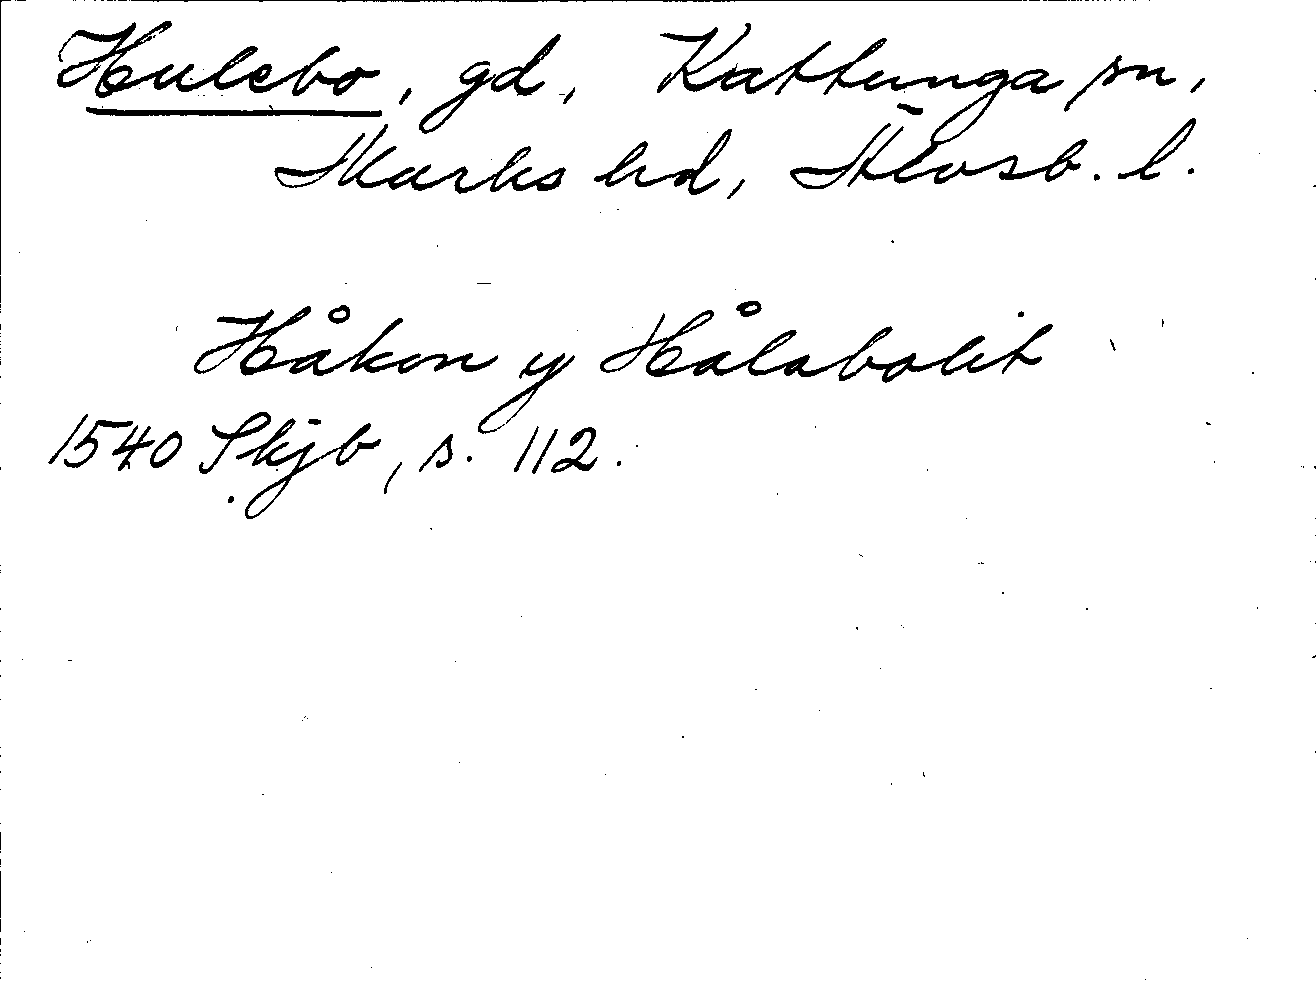 Hulebo, gd, Kattunga sn,
Marks hd, Älvsb. l.
Håkon y Hålabolit
1540 Skjb, s. 112.